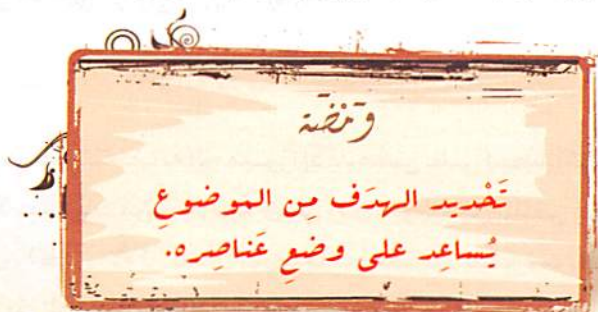 وَمْضَة
تَحْديد الهدَف مِن الموضوعِ
يُساعِد على وضعِ عَناصِره.